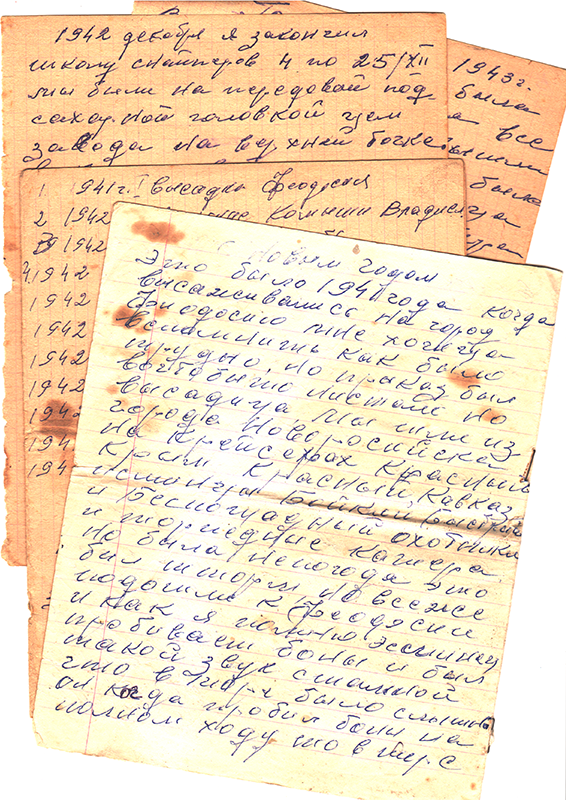 1942 декабря я закончил
школу снайперов и по 25/XII
мы были на передовой под
сахарной головкой цем
завода на верхней
1943 г.
была
все
было
1 1941 г. высадка Феодосия
2 1942 Камыши Владислава
1942
4 1942
1942
1942
1942
1942
1942
194
194
С Новым годом
Это было 1941 года когда
высаживались на город
Феодосию мне хочеца
вспомнить как было
трудно, но приказ был
во чтобы то нистало но
высадица мы шли из
города Новоросийска
на крейсерах Красный
Крым Красный Кавказ
Эсминцы Бойкий, Быстрый
и Беспощадный охотники
и торпедные катера
но была непогода это
был шторм но все же
подошли к Феодосии
и как я помню эсминец
пробивает боны и был
такой звук стальной
что в было слышно
он когда пробил боны на
полном ходу то в